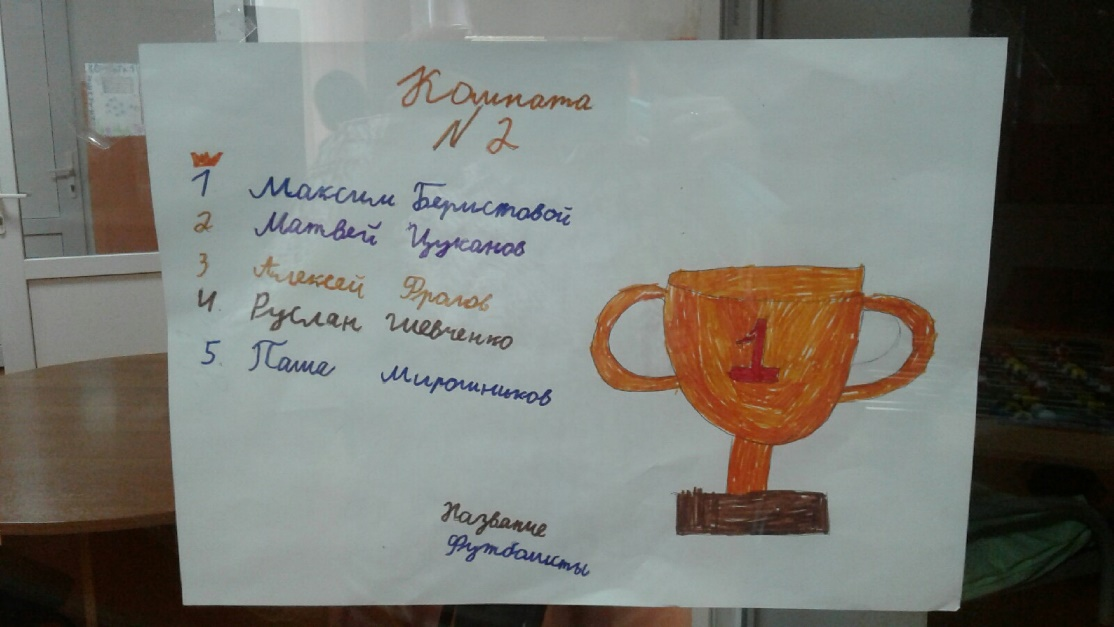 Комната
N 2
1 Максим Беристовой
2 Матвей Цуканов
3 Алексей Фролов
4. Руслан Шевченко
5. Паша Мирошников
1
Название
Футболисты